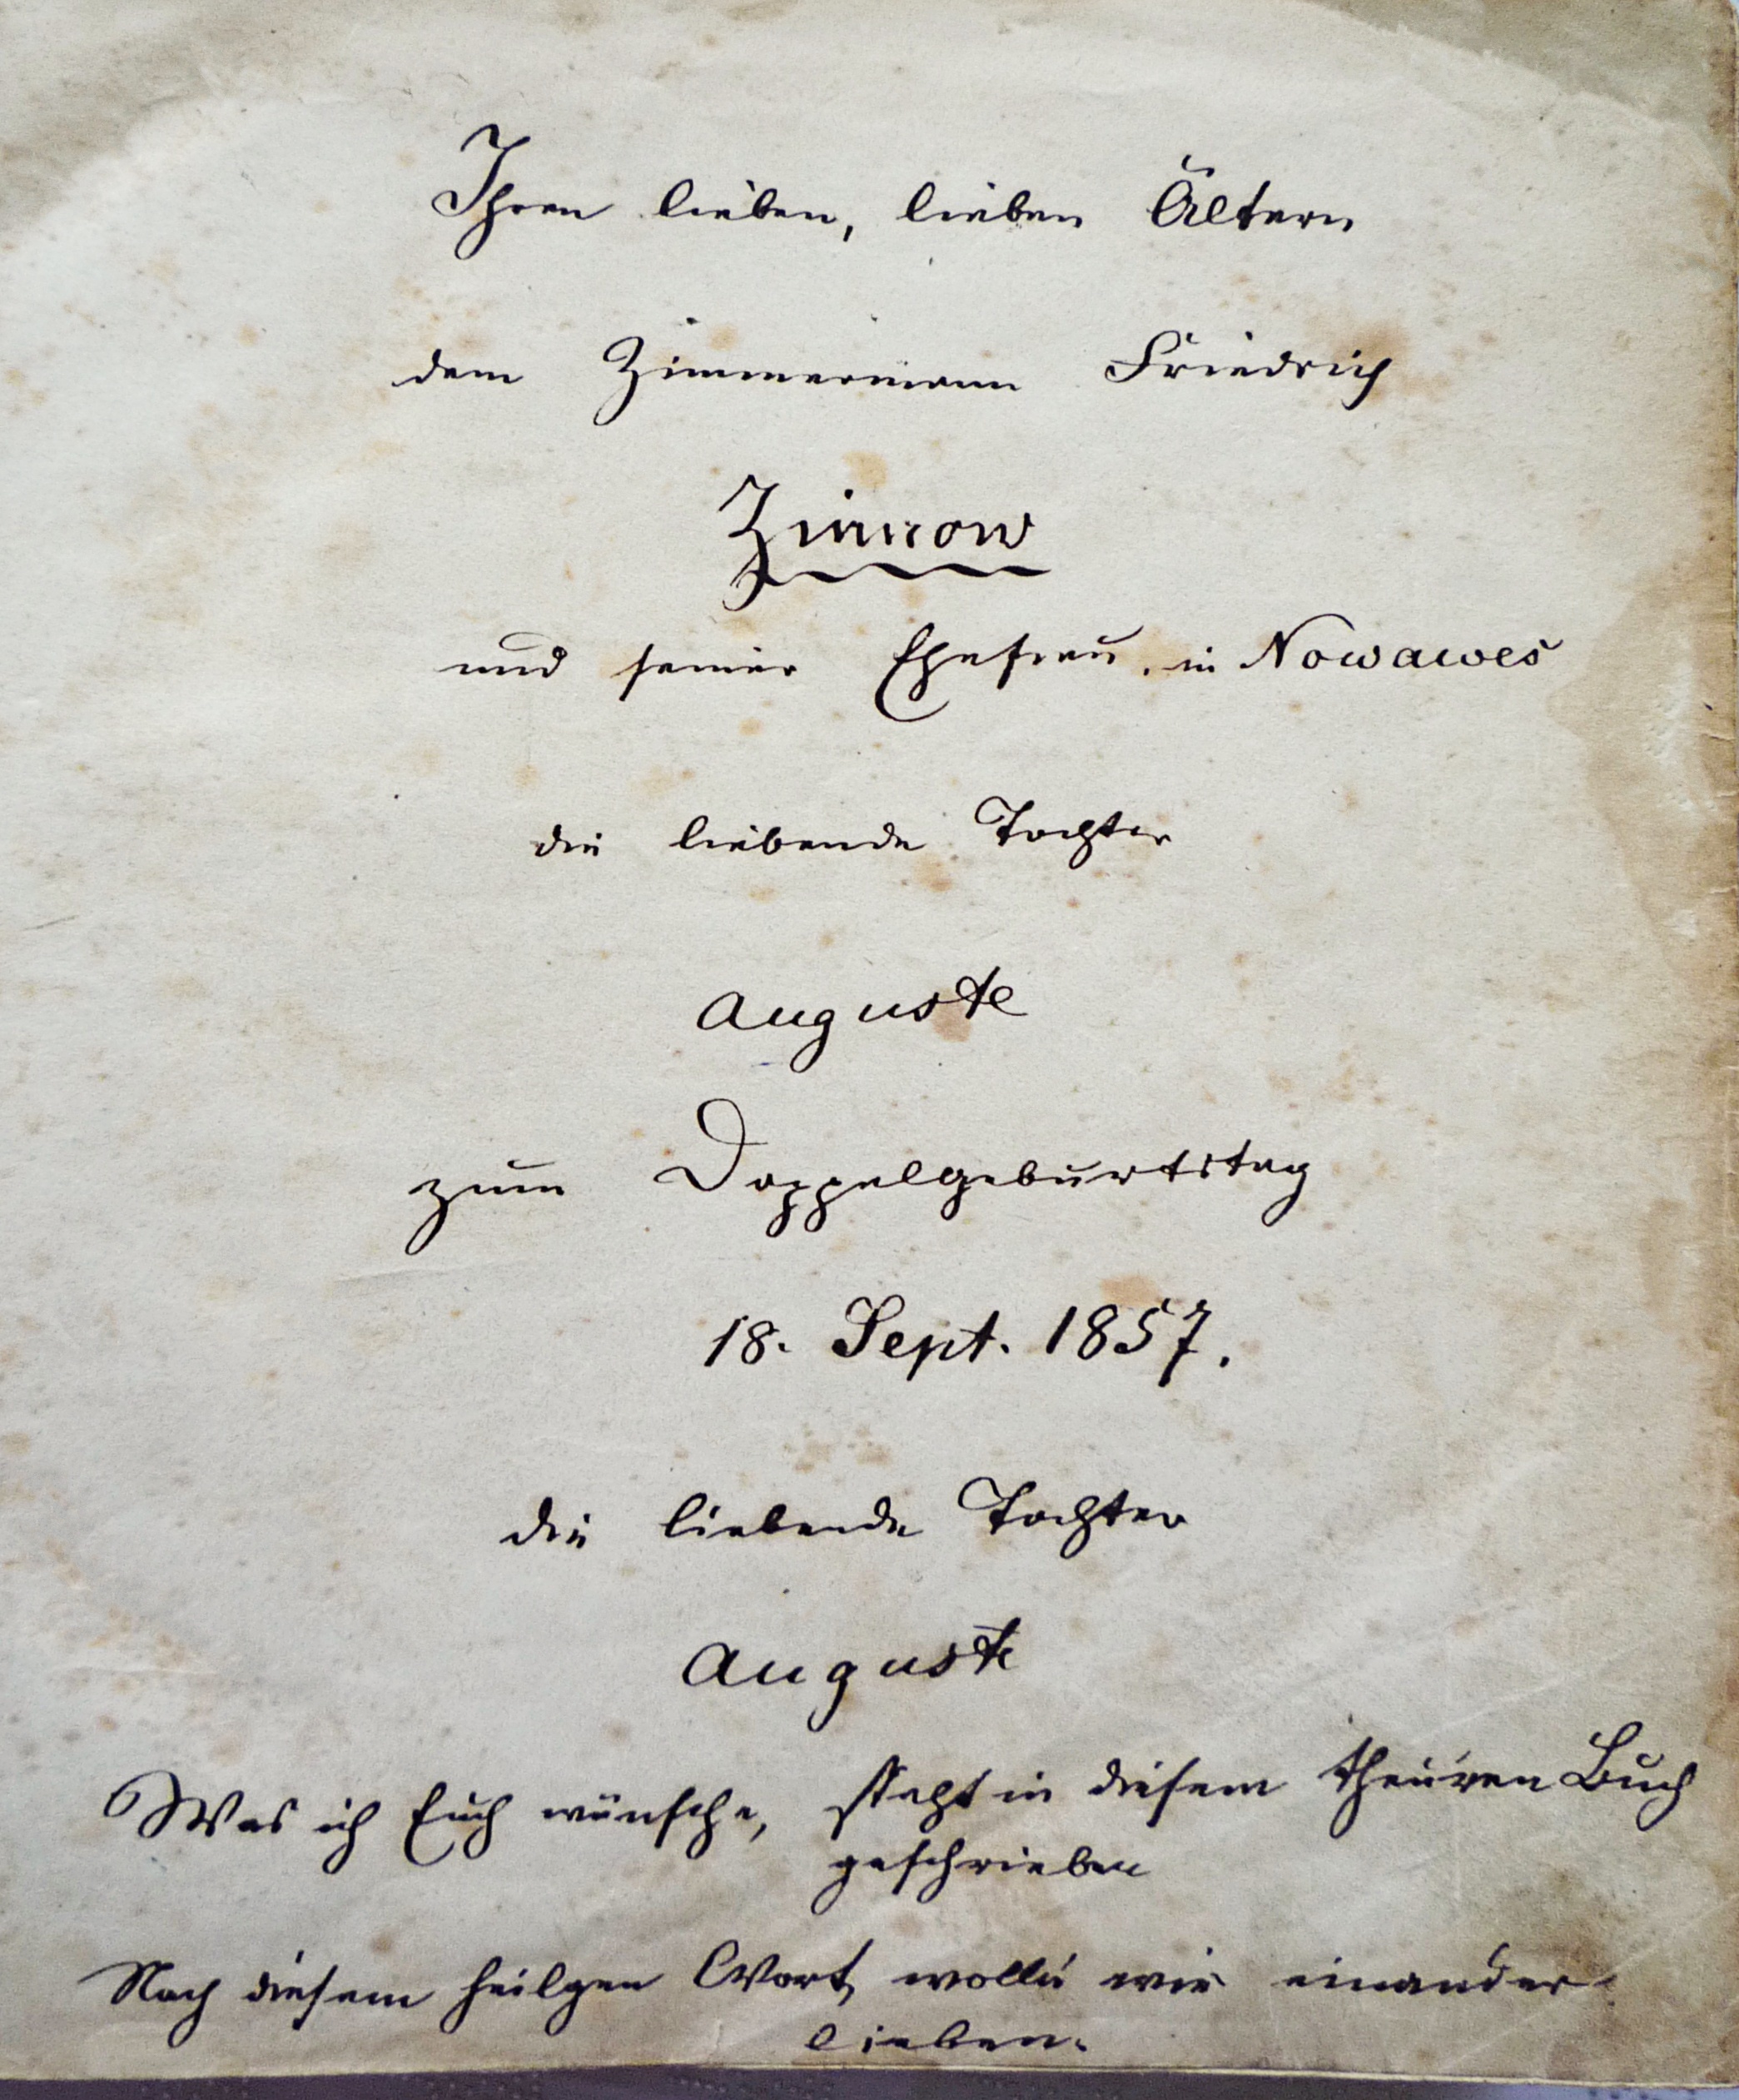 Ihren lieben, lieben Ältern
dem Zimmermann Friedrich
Zinnow
und seiner Ehefrau, in Nowawes
die liebende Tochter
Auguste
zum Doppelgeburtstag
18. Sept. 1857.
die liebende Tochter
Auguste
Was ich Euch wünsche, steht in diesem theuren Buch
geschrieben
Nach diesem heilgen Wort, wolln wir einander
lieben.